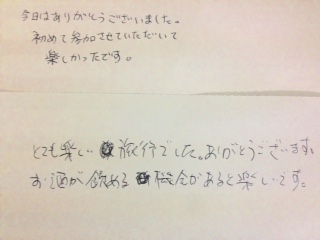 今日はありがとうございました。
初めて参加させていただいて
楽しかったです。
とても楽しい旅行でした。ありがとうございます。
お酒が飲める機会があると楽しいです。